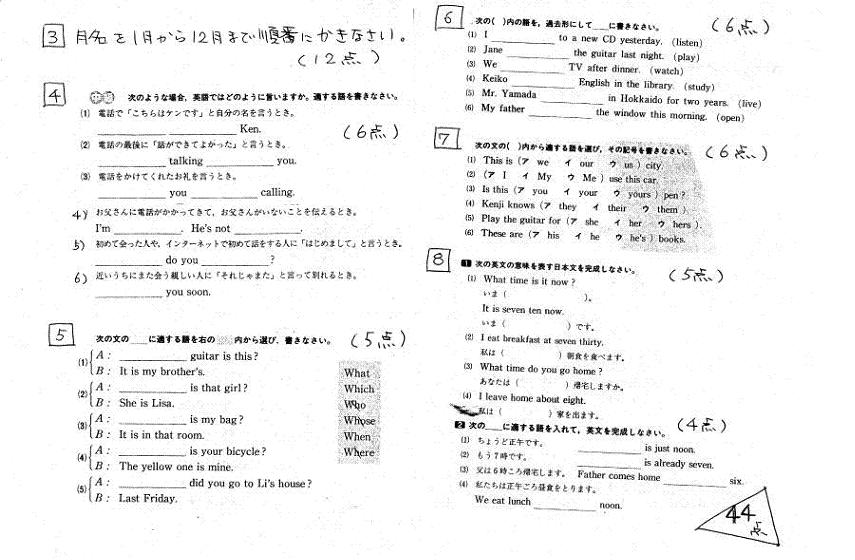 3 月名を1月から12月まで順番にかきなさい。
(12点)
4 次のような場合，英語ではどのように言いますか。適する語を書きなさい。
(6点)
(1) 電話で「こちらはケンです」と自分の名を言うとき。
____ Ken.
(2) 電話の最後に「話ができてよかった」と言うとき。
____ talking ____ you.
(3) 電話をかけてくれたお礼を言うとき。
____ you ____ calling.
4) お父さんに電話がかかってきて，お父さんがいないことを伝えるとき。
I'm ____. He's not ____.
5) 初めて会った人や，インターネットで初めて話をする人に「はじめまして」と言うとき。
____ do you ____?
6) 近いうちにまた会う親しい人に「それじゃまた」と言って別れるとき。
____ you soon.
5 次の文の ____ に適する語を右の 内から選び，書きなさい。 (5点)
(1) A : ____ guitar is this?
B : It is my brother's.
(2) A : ____ is that girl?
B : She is Lisa.
(3) A : ____ is my bag?
B : It is in that room.
(4) A : ____ is your bicycle?
B : The yellow one is mine.
(5) A : ____ did you go to Li's house?
B : Last Friday.
What
Which
Who
Whose
When
Where
6 次の( )内の語を，過去形にして ____ に書きなさい。 (6点)
(1) I ____ to a new CD yesterday. (listen)
(2) Jane ____ the guitar last night. (play)
(3) We ____ TV after dinner. (watch)
(4) Keiko ____ English in the library. (study)
(5) Mr. Yamada ____ in Hokkaido for two years. (live)
(6) My father ____ the window this morning. (open)
7 次の文の( )内から適する語を選び，その記号を書きなさい。 (6点)
(1) This is (ア we イ our ウ us) city.
(2) (ア I イ My ウ Me) use this car.
(3) Is this (ア you イ your ウ yours) pen?
(4) Kenji knows (ア they イ their ウ them).
(5) Play the guitar for (ア she イ her ウ hers).
(6) These are (ア his イ he ウ he's) books.
8 1 次の英文の意味を表す日本文を完成しなさい。 (5点)
(1) What time is it now?
いま ( )。
It is seven ten now.
いま ( ) です。
(2) I eat breakfast at seven thirty.
私は ( ) 朝食を食べます。
(3) What time do you go home?
あなたは ( ) 帰宅しますか。
(4) I leave home about eight.
私は ( ) 家を出ます。
2 次の ____ に適する語を入れて，英文を完成しなさい。 (4点)
(1) ちょうど正午です。 ____ is just noon.
(2) もう7時です。 ____ is already seven.
(3) 父は6時ころ帰宅します。 Father comes home ____ six.
(4) 私たちは正午ごろ昼食をとります。
We eat lunch ____ noon.
44点